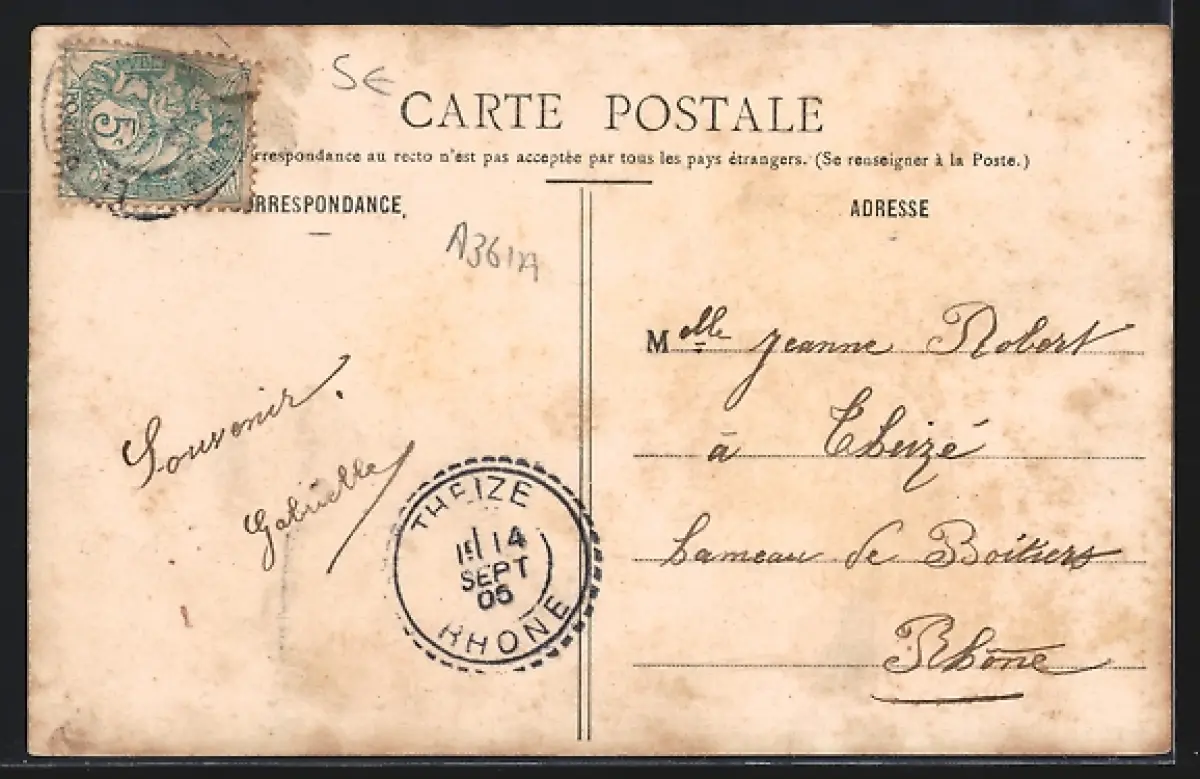 5c
5€
CARTE POSTALE
rrespondance au recto n'est pas acceptée par tous les pays étrangers. (Se renseigner à la Poste.)
ORRESPONDANCE
ADRESSE
A361A
Melle Jeanne Robert
à Theizé
hameau de Boitiers
Rhône
Souvenir.
Gabrielle
THEIZE
14
SEPT
05
RHONE